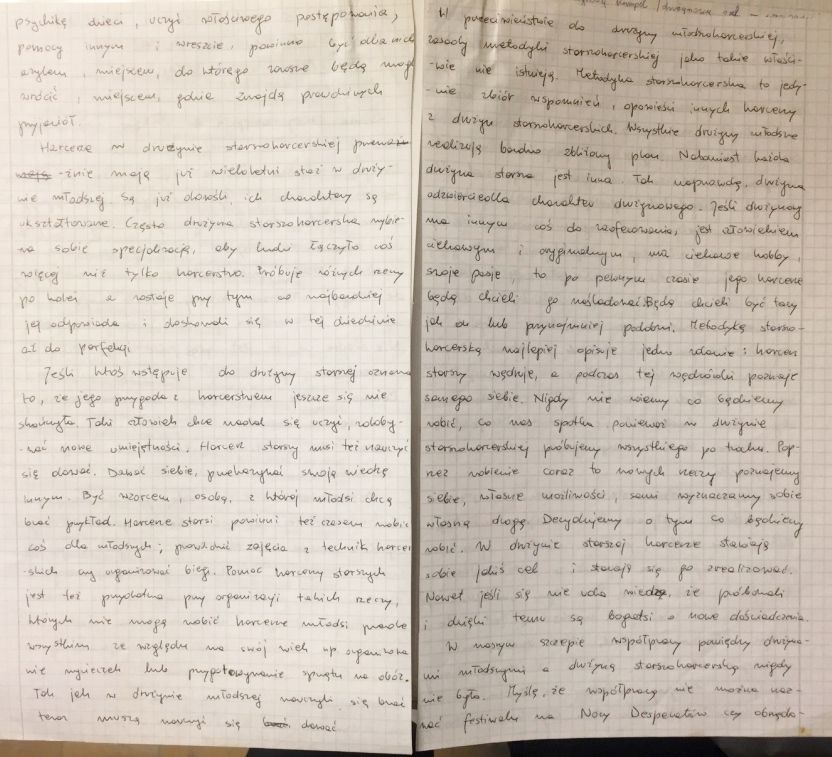 psychikę dzieci, uczyć właściwego postępowania,
pomocy innym i wreszcie, powinno być dla nich
azylem, miejscem, do którego zawsze będą mogl
wrócić, miejscem, gdzie znajdą prawdziwych
przyjaciół.
Harcerze w drużynie starszoharcerskiej
mają już wieloletni staż w druży-
nie młodszej. Są już dorośli, ich charaktery są
ukształtowane. Często drużyna starszoharcerska wybie-
ra sobie specjalizację, aby ludzi łączyło coś
więcej niż tylko harcerstwo. Próbuje różnych rzeczy
po kolei a zostaje przy tym co najbardziej
jej odpowiada i doskonali się w tej dziedzinie
aż do perfekcji.
Jeśli ktoś wstępuje do drużyny starszej oznacza
to, że jego przygoda z harcerstwem jeszcze się nie
skończyła. Taki człowiek chce nadal się uczyć, zdoby-
-wać nowe umiejętności. Harcerz starszy musi też nauczyć
się dawać. Dawać siebie, przekazywać swoją wiedzę
innym. Być wzorcem, osobą, z której młodsi chcą
brać przykład. Harcerze starsi powinni też czasem robić
coś dla młodszych; prowadzić zajęcia z technik harcer
-skich czy organizować biegi. Pomoc harcerzy starszych
jest też przydatna przy organizacji takich rzeczy,
których nie mogą robić harcerze młodsi przede
wszystkim ze względu na swój wiek np organizowa
nie wycieczek lub przygotowywanie sprzętu na obóz.
Tak jak w drużynie młodszej nauczyli się brać
teraz muszą nauczyć się dawać
W przeciwieństwie do drużyny młodszoharcerskiej,
zasady metodyki starszoharcerskiej jako takie właści-
-wie nie istnieją. Metodyka starszoharcerska to jedy-
-nie zbiór wspomnień, opowieści innych harcerzy
z drużyn starszoharcerskich. Wszystkie drużyny młodsze
realizują bardzo zbliżony plan. Natomiast każda
drużyna starsza jest inna. Tak naprawdę, drużyna
odzwierciedla charakter drużynowego. Jeśli drużynowy
ma innym coś do zaoferowania, jest człowiekiem
ciekawym i oryginalnym, ma ciekawe hobby,
swoje pasje, to po pewnym czasie jego harcerze
będą chcieli go naśladować. Będą chcieli być tacy
jak on lub przynajmniej podobni. Metodykę starszo-
harcerską najlepiej opisuje jedno zdanie: harcerz
starszy wędruje, a podczas tej wędrówki poznaje
samego siebie. Nigdy nie wiemy co będziemy
robić, co nas spotka ponieważ w drużynie
starszoharcerskiej próbujemy wszystkiego po trochu. Pop-
rzez robienie coraz to nowych rzeczy poznajemy
siebie, własne możliwości, sami wyznaczamy sobie
własną drogę. Decydujemy o tym co będziemy
robić. W drużynie starszej harcerze stawiają
sobie jakiś cel i starają się go zrealizować.
Nawet jeśli się nie uda wiedzą, że próbowali
i dzięki temu są bogatsi o nowe doświadczenia.
W naszym szczepie współpracy pomiędzy drużyna-
mi młodszymi a drużyną starszoharcerską nigdy
nie było. Myślę, że współpracą nie można naz-
wać festiwalu na Nocy Desperatów czy obrzędo-